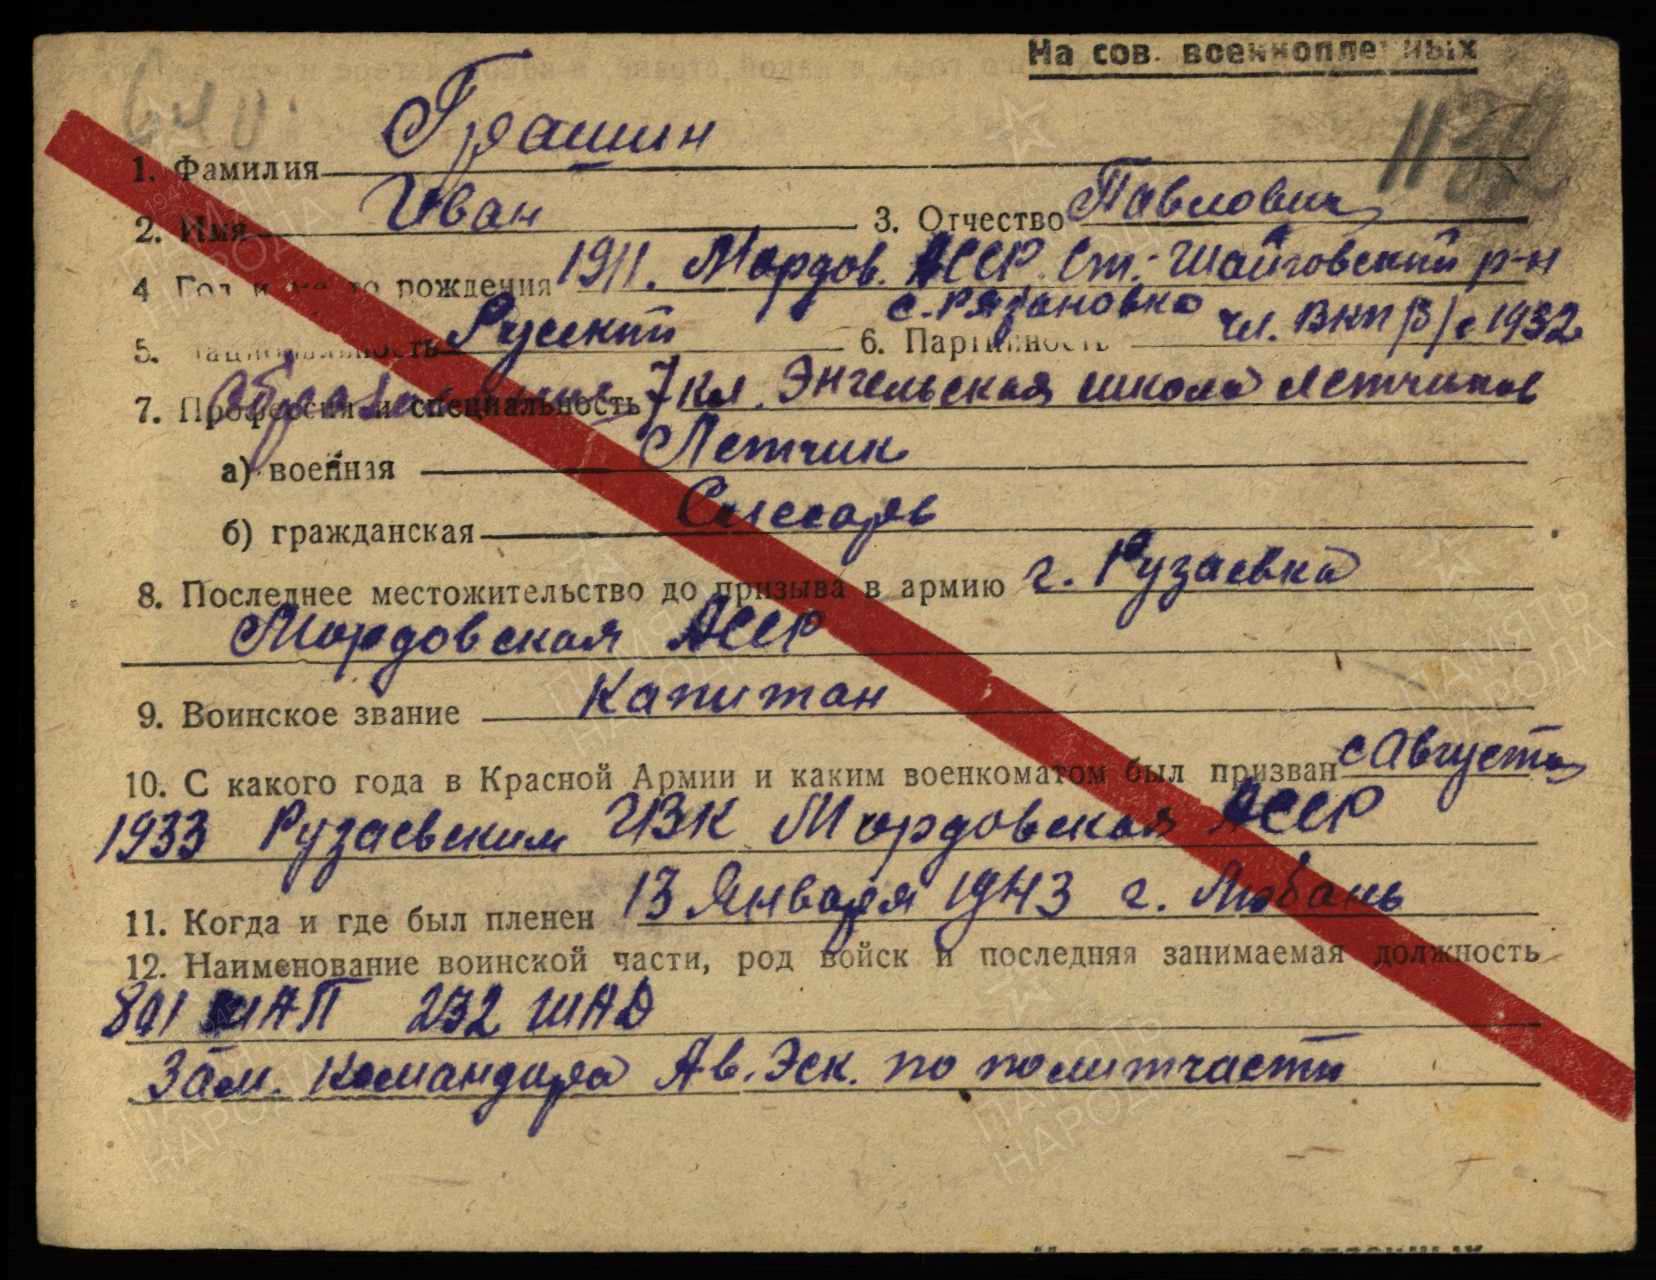 На сов. военнопленных
1. Фамилия Грашин
2. Имя Иван 3. Отчество Павлович
4 Год и место рождения 1911. Мордов. АССР. Ст.-Шайговский р-н
с. Рязановка
5. Национальность Русский 6. Партийность чл. ВКП/б/ с 1932
7. Профессия и специальность Образование 7 кл. Энгельская школа летчиков
а) военная Летчик
б) гражданская Слесарь
8. Последнее местожительство до призыва в армию г. Рузаевка
Мордовская АССР
9. Воинское звание Капитан
10. С какого года в Красной Армии и каким военкоматом был призван с Августа
1933 Рузаевским ГВК Мордовская АССР
11. Когда и где был пленен 13 Января 1943 г. Любань
12. Наименование воинской части, род войск и последняя занимаемая должность
801 ШАП 232 ШАД
Зам. командира Ав. Эск. по политчасти
ПАМЯТЬ
НАРОДА